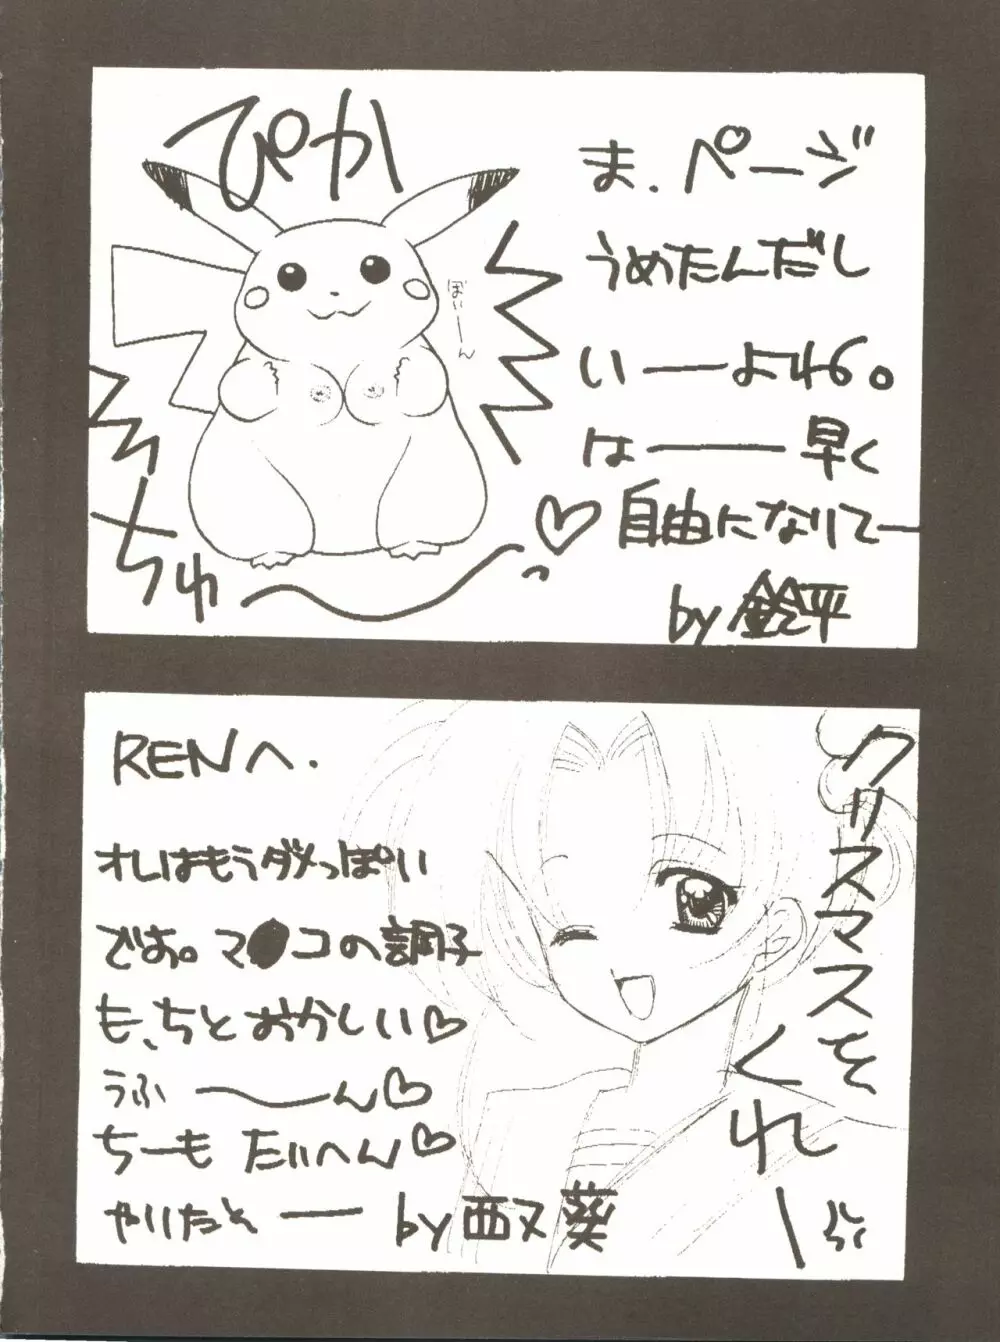 ぴか
ちゅ
ぼいーん
ま、ページ
うめたんだし
いーよね。
はー早く
自由になりてー
by 鈴平
RENへ.
オレはもうダメっぽい
です。マ●コの調子
も、ちとおかしい♡
うふーーん♡
ちーも たいへん♡
やいたそー
by 西又葵
クリスマスを
くれー